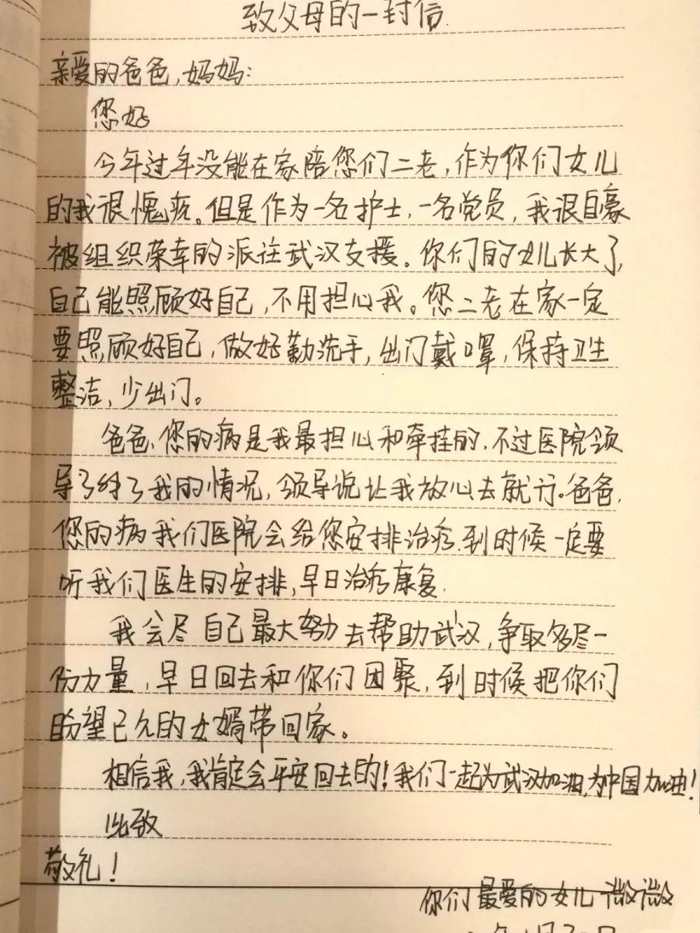 致父母的一封信
亲爱的爸爸,妈妈:
您好
今年过年没能在家陪您们二老,作为你们女儿
的我很愧疚。但是作为一名护士,一名党员,我很自豪
被组织荣幸的派往武汉支援。你们的女儿长大了,
自己能照顾好自己,不用担心我。您二老在家一定
要照顾好自己,做好勤洗手,出门戴口罩,保持卫生
整洁,少出门。
爸爸,您的病是我最担心和牵挂的.不过医院领
导了解了我的情况,领导说让我放心去就行。爸爸,
您的病我们医院会给您安排治疗.到时候一定要
听我们医生的安排,早日治疗康复.
我会尽自己最大努力去帮助武汉,争取多尽一
份力量,早日回去和你们团聚,到时候把你们
盼望已久的女婿带回家。
相信我,我肯定会平安回去的!我们一起为武汉加油,为中国加油!
此致
敬礼!
你们最爱的女儿 微微